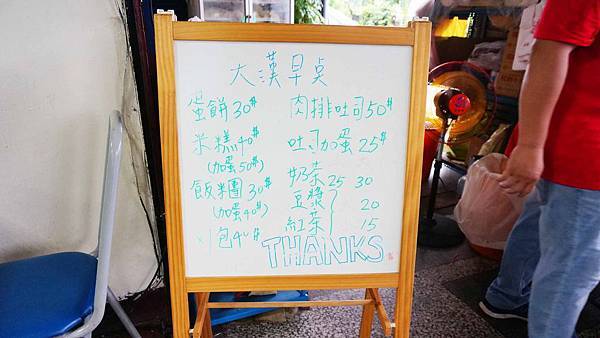 大漢早桌
蛋餅30#
米糕40#
(加蛋50#)
飯糰30#
(加蛋40#)
包40#
肉排吐司50#
吐司加蛋25#
奶茶 25 30
豆漿 20
紅茶 15
THANKS